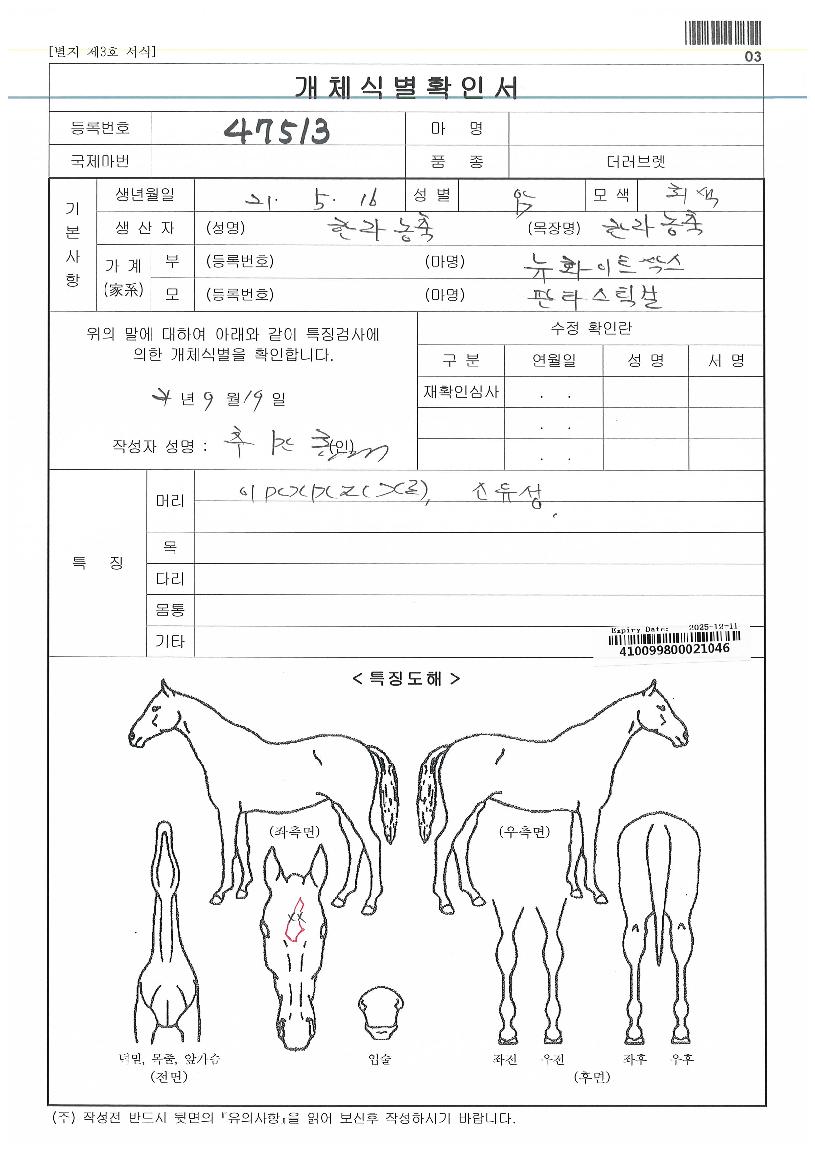 [별지 제3호 서식]
03
개체식별확인서
등록번호 47513 마 명
국제마번 품 종 더러브렛
기본사항
생년월일 21. 5. 16 성 별 암 모 색 회색
생 산 자 (성명) 한라농축 (목장명) 한라농축
가 계 (家系)
부 (등록번호) (마명) 뉴화이트삭스
모 (등록번호) (마명) 판타스틱찰
위의 말에 대하여 아래와 같이 특징검사에
의한 개체식별을 확인합니다.
년 9 월 19 일
작성자 성명 : (인)
수정 확인란
구 분 연월일 성 명 서 명
재확인심사 . .
. .
. .
특 징
머리
목
다리
몸통
기타
Expiry Date: 2025-12-11
410099800021046
< 특징도해 >
(좌측면) (우측면)
턱밑, 목줄, 앞가슴
(전면)
입술
좌전 우전 좌후 우후
(후면)
(주) 작성전 반드시 뒷면의 『유의사항』을 읽어 보신후 작성하시기 바랍니다.